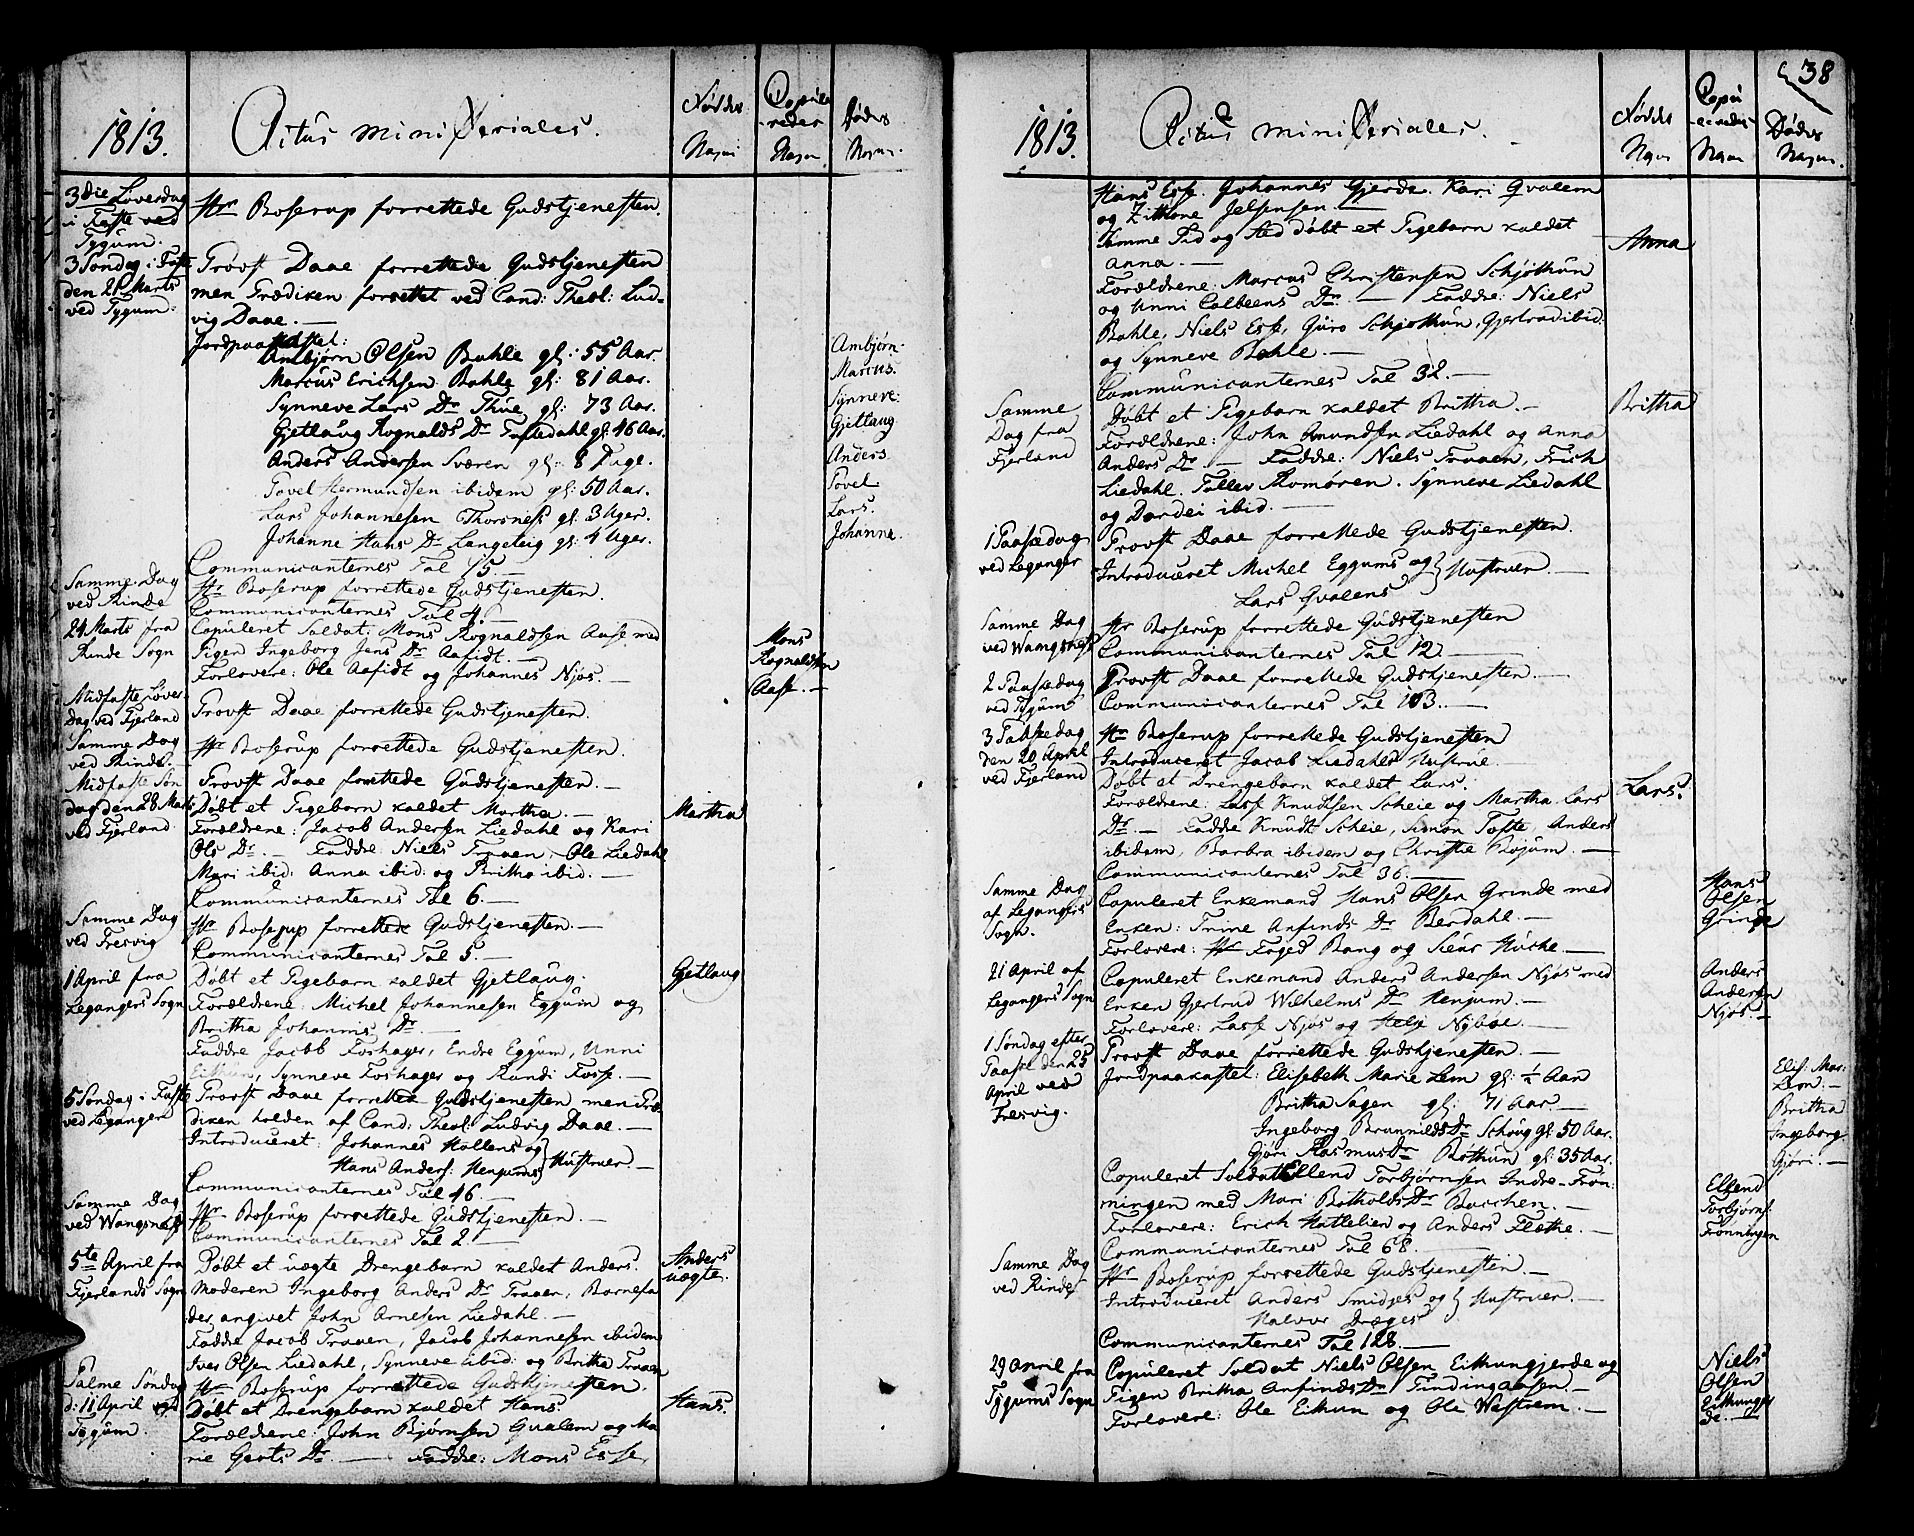 1813.
Actus Ministeriales.
Føddes Nagn
Copuleredes Nagn.
Dødes Nagn.
3die Løverdag i Faste ved Tygum.
Hr Boserup forrettede Gudstjenesten.
3 Søndag i Faste den 21 Marts ved Tygum.
Provst Daae forrettede Gudstjenesten
men Prædiken forrettet ved Cand: Theol: Lud-
vig Daae. —
Jordpaakastet:
Ambjørn Olsen Bahle gl: 55 Aar.
Ambjørn.
Marcus Erichsen Bahle gl: 81 Aar.
Marcus.
Synneve Lars Dr Thue gl: 73 Aar.
Synneve.
Gjetlaug Rognalds Dr Tuftedahl gl: 46 Aar.
Gjetlaug
Anders Andersen Sværen gl: 8 Dage.
Anders
Povel Hermundsen ibidem gl: 50 Aar.
Povel
Lars Johannesen Thorsnes gl: 3 Uger.
Lars.
Johanne Hans Dr Langeteig gl: 4 Uger.
Johanne.
Communicanternes Tal 15. —
Samme Dag ved Rinde
Hr Boserup forrettede Gudstjenesten.
Communicanternes Tal 4. —
24 Marts fra Rinde Sogn
Copuleret Soldat: Mons Rognaldsen Aase med
Pigen Ingeborg Jens Dr Aafidt. —
Forlovere: Ole Aafidt og Johannes Njøs. —
Mons Rognaldsen Aase. —
Midfaste Løverdag ved Fjerland
Provst Daae forrettede Gudstjenesten.
Samme Dag ved Rinde. —
Hr Boserup forrettede Gudstjenesten.
Midfaste Søndag den 28 Marts ved Fjerland
Provst Daae forrettede Gudstjenesten. —
Døbt et Pigebarn kaldet Martha. —
Martha
Forældrene: Jacob Andersen Liedahl og Kari
Ols Dr. — Faddre: Niels Traaen, Ole Liedahl
Mari ibid: Anna ibid: og Britha ibid. —
Communicanternes Tal 6. —
Samme Dag ved Fresvig
Hr Boserup forrettede Gudstjenesten. —
Communicanternes Tal 5. —
1 April fra Legangers Sogn
Døbt et Pigebarn kaldet Gjetlaug.
Gjetlaug
Forældrene: Michel Johannesen Eggum og
Britha Johannis Dr. —
Faddre Jacob Foshager, Endre Eggum, Unni
Eikum, Synneve Foshager og Randi Fosse. —
5 Søndag i Faste ved Leganger
Provst Daae forrettede Gudstjenesten men Præ-
diken holden af Cand: Theol: Ludvig Daae. —
Introduceret: Johannes Hallens og
Hans Anders: Henjums } Hustruer. —
Communicanternes Tal 46. —
Samme Dag ved Wangsnæs
Hr Boserup forrettede Gudstjenesten. —
Communicanternes Tal 2. —
5te April fra Fjerlands Sogn
Døbt et uægte Drengebarn kaldet Anders.
Anders uægte.
Moderen Ingeborg Anders Dr Traaen, Barnefa-
der angivet John Arnesen Liedahl. —
Faddre Jacob Traaen, Jacob Johannesen ibidem
Iver Olsen Liedahl, Synneve ibid: og Britha Traaen
Palme Søndag d: 11 April ved Tygum.
Hr Boserup forrettede Gudstjenesten.
Døbt et Drengebarn kaldet Hans.
Hans.
Forældrene: John Bjørnsen Qualem og Ma-
rie Gjerts Dr. — Faddre: Mons Esse,
38
1813.
Actus Ministeriales.
Føddes Nagn
Copuleredes Nagn
Dødes Nagn.
Hans Esse. Johannes Gjerde. Kari Qvalem
og Zittone Jelsensen. —
Samme Tid og Sted døbt et Pigebarn kaldet
Anna. —
Anna
Forældrene: Marcus Christensen Schjøthun
og Unni Colbeens Dr. — Faddre: Niels
Bahle, Niels Esse, Guro Schjøthun, Gjertrud ibid:
og Synneve Bahle. —
Communicanternes Tal 32. —
Samme Dag fra Fjerland
Døbt et Pigebarn kaldet Britha. —
Britha
Forældrene: John Amundsen Liedahl og Anna
Anders Dr. — Faddre: Niels Traaen, Erich
Liedahl. Tollev Romøren. Synneve Liedahl
og Dordei ibid. —
1 Paaskedag ved Leganger
Provst Daae forrettede Gudstjenesten.
Introduceret Michel Eggums og
Lars Qvalens } Hustruer. —
Samme Dag ved Wangsnæs
Hr Boserup forrettede Gudstjenesten
Communicanternes Tal 12. —
2 Paaskedag ved Tygum
Provst Daae forrettede Gudstjenesten. —
Communicanternes Tal 103. —
3 Paaskedag den 20 April ved Fjerland
Hr Boserup forrettede Gudstjenesten
Introduceret Jacob Liedahls Hustrue. —
Døbt et Drengebarn kaldet Lars.
Lars.
Forældrene: Lasse Knudsen Scheie og Martha Lars
Dr. — Faddre Knudt Scheie, Simon Tofte, Anders
ibidem, Barbra ibidem og Christie Bøjum. —
Communicanternes Tal 36. —
Samme Dag af Legangers Sogn.
Copuleret Enkemand Hans Olsen Grinde med
Enken: Trine Anfinds Dr Berdahl. —
Forlovere: Hr Foged Bang og Sieur Husche —
Hans Olsen Grinde
21 April af Legangers Sogn
Copuleret Enkemand Anders Andersen Njøs med
Enken Gjertrud Wilhelms Dr Henjum. —
Forlovere: Lasse Njøs og Helje Nybøe. —
Anders Andersen Njøs. —
1 Søndag efter Paaske den 25 April ved Fresvig.
Provst Daae forrettede Gudstjenesten. —
Jordpaakastet: Elisebeth Marie Lem gl: ½ Aar
Elis: Mar: Lem. —
Britha Sagen gl: 71 Aar. —
Britha
Ingeborg Brunnilds Dr Schoug gl: 50 Aar.
Ingeborg
Gjøri Rasmus Dr Bøthun gl: 35 Aar.
Gjøri. —
Copuleret Soldat Ellend Torbjørnsen Indre-Frøn-
ningen med Mari Botholds Dr Bacchen. —
Forlovere: Erich Hattelien og Anders Flethe. —
Ellend Torbjørns: Frønningen
Communicanternes Tal 68. —
Samme Dag ved Rinde
Hr Boserup forrettede Gudstjenesten. —
Introduceret Anders Smidjes og
Halvor Dræges } Hustruer. —
Communicanternes Tal 128. —
29 April fra Tygums Sogn
Copuleret Soldat Niels Olsen Eithungjerde og
Pigen Britha Anfinds Dr Findingaasen. —
Forlovere: Ole Eithun og Ole Wæstrem. —
Niels Olsen Eithungjerde. —